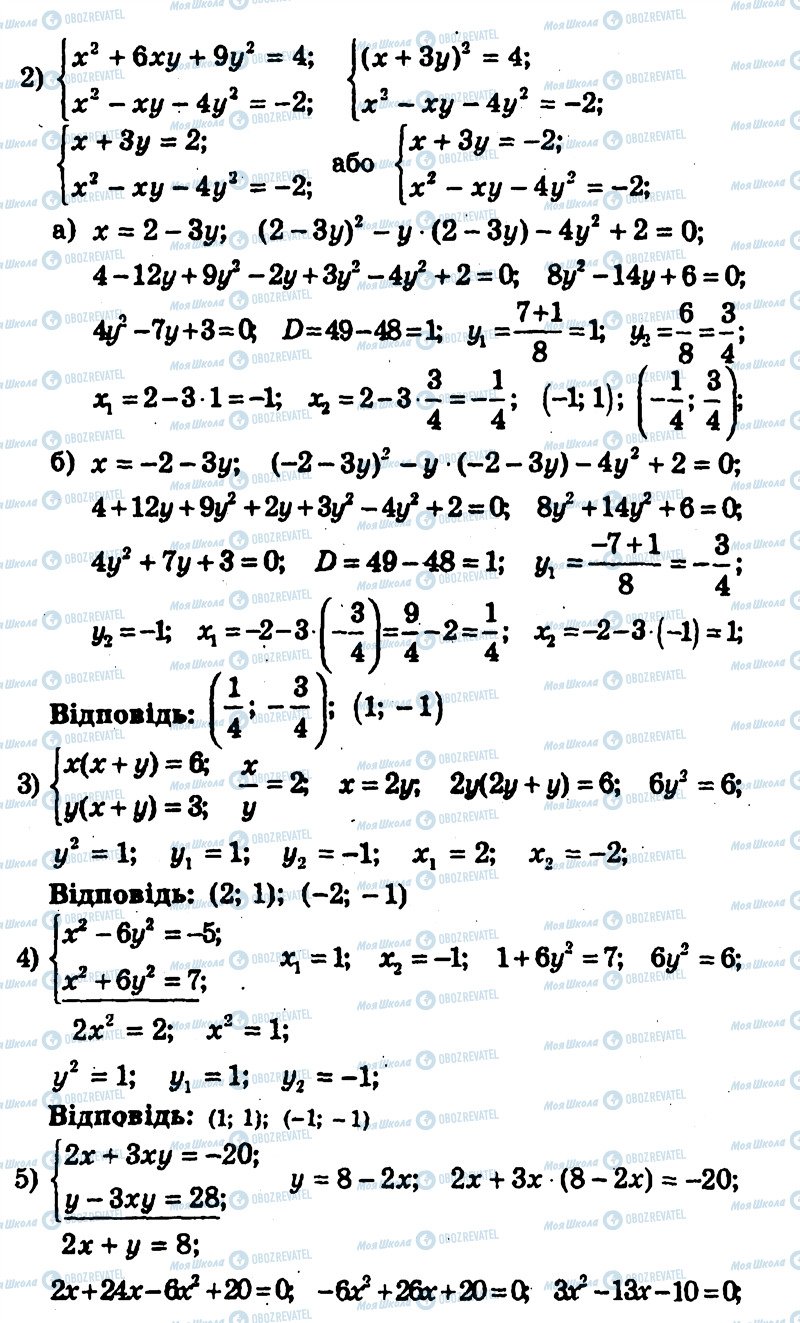 2) { x² + 6xy + 9y² = 4; { (x + 3y)² = 4;
x² − xy − 4y² = −2; x² − xy − 4y² = −2;
{ x + 3y = 2; або { x + 3y = −2;
x² − xy − 4y² = −2; x² − xy − 4y² = −2;
а) x = 2 − 3y; (2 − 3y)² − y · (2 − 3y) − 4y² + 2 = 0;
4 − 12y + 9y² − 2y + 3y² − 4y² + 2 = 0; 8y² − 14y + 6 = 0;
4y² − 7y + 3 = 0; D = 49 − 48 = 1; y₁ = (7+1)/8 = 1; y₂ = 6/8 = 3/4;
x₁ = 2 − 3 · 1 = −1; x₂ = 2 − 3 · 3/4 = −1/4; (−1; 1); (−1/4; 3/4);
б) x = −2 − 3y; (−2 − 3y)² − y · (−2 − 3y) − 4y² + 2 = 0;
4 + 12y + 9y² + 2y + 3y² − 4y² + 2 = 0; 8y² + 14y² + 6 = 0;
4y² + 7y + 3 = 0; D = 49 − 48 = 1; y₁ = (−7 + 1)/8 = −3/4;
y₂ = −1; x₁ = −2 − 3 · (−3/4) = 9/4 − 2 = 1/4; x₂ = −2 − 3 · (−1) = 1;
Відповідь: (1/4; −3/4); (1; −1)
3) { x(x + y) = 6; x/y = 2; x = 2y; 2y(2y + y) = 6; 6y² = 6;
y(x + y) = 3;
y² = 1; y₁ = 1; y₂ = −1; x₁ = 2; x₂ = −2;
Відповідь: (2; 1); (−2; −1)
4) { x² − 6y² = −5;
x² + 6y² = 7; x₁ = 1; x₂ = −1; 1 + 6y² = 7; 6y² = 6;
2x² = 2; x² = 1;
y² = 1; y₁ = 1; y₂ = −1;
Відповідь: (1; 1); (−1; −1)
5) { 2x + 3xy = −20;
y − 3xy = 28; y = 8 − 2x; 2x + 3x · (8 − 2x) = −20;
2x + y = 8;
2x + 24x − 6x² + 20 = 0; −6x² + 26x + 20 = 0; 3x² − 13x − 10 = 0;
Моя Школа OBOZREVATEL